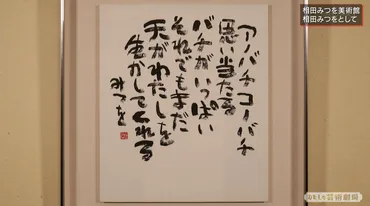 相田みつを美術館
相田みつをとして
アノバチコノバチ
思い当たる
バチがいっぱい
それでもまだ
天がわたしを
生かしてくれる
みつを